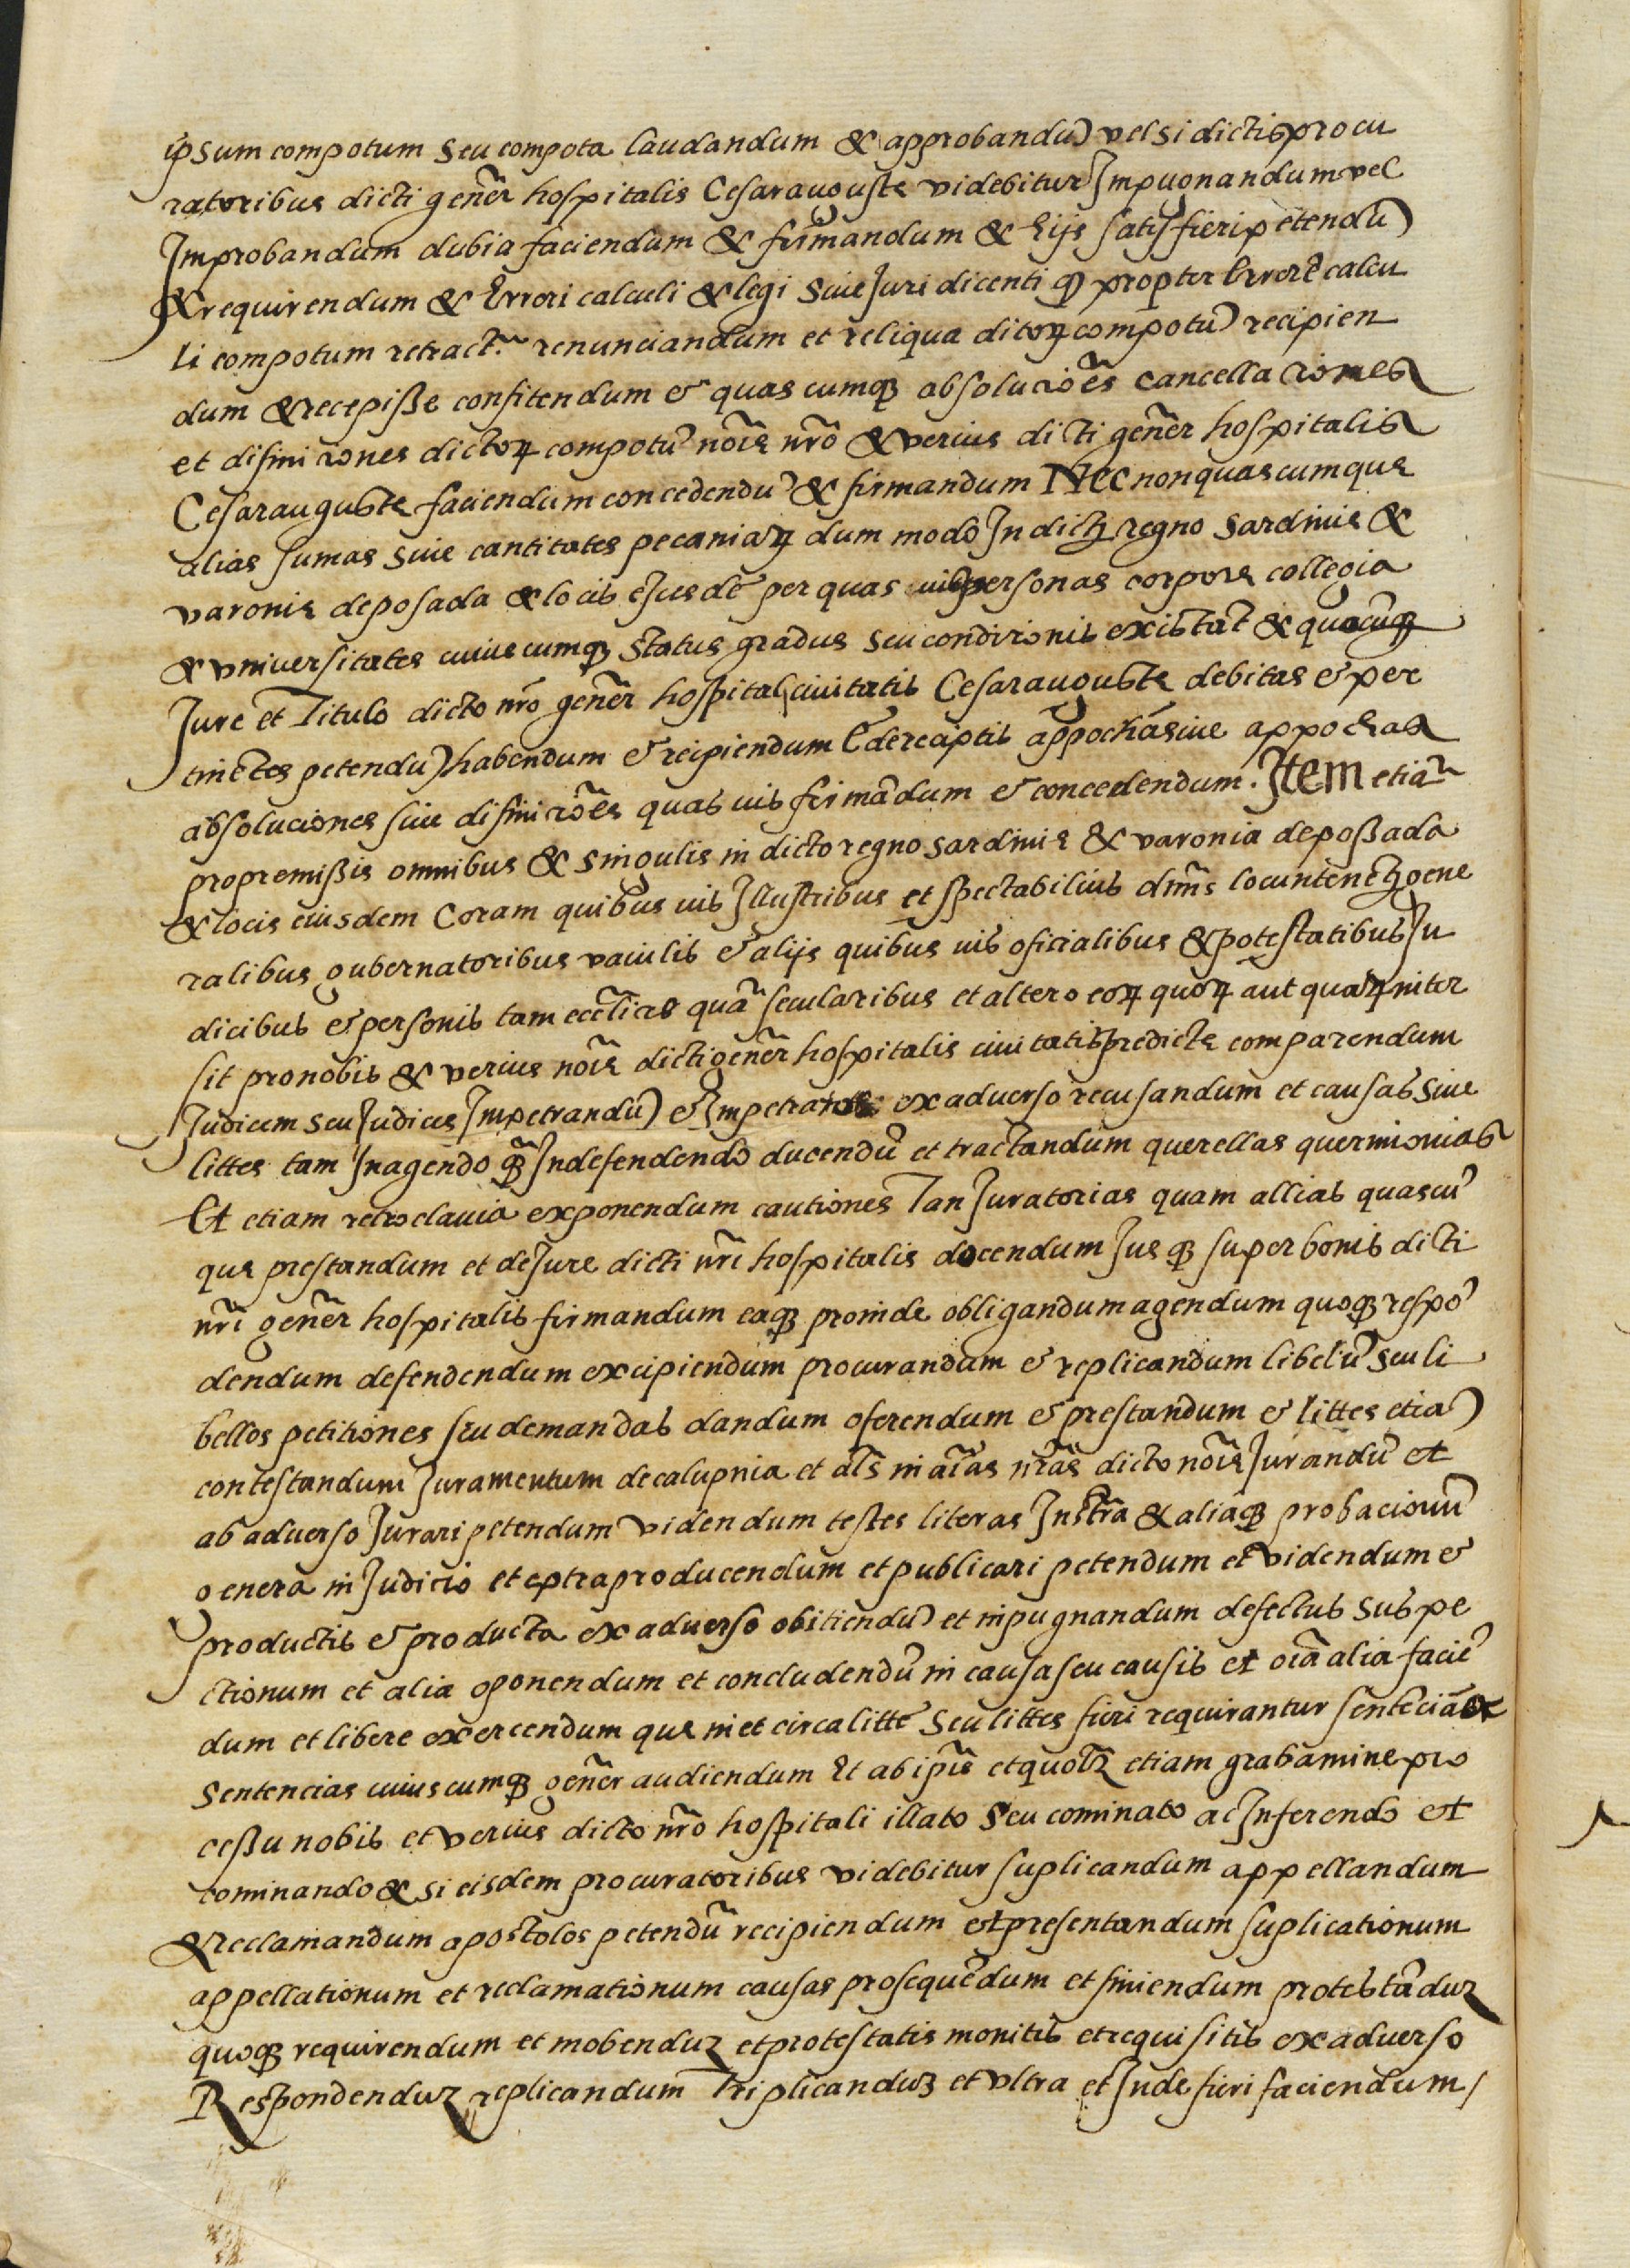 ipsum compotum seu compota laudandum & approbandũ vel si dictis procu
ratoribus dicti geñer hospitalis Cesarauguste videbitur Impugnandum vel
Improbandum dubia faciendum & firmandum & Eijs satisfieri petendũ
& requirendum & Errori calculi & legi siue Juri dicenti q̃ propter Errorẽ calcu
li compotum retract.ri renunciandum et reliqua ditoꝝ compotũ recipien
dum & recepiße confitendum & quas cumqꝫ absolucioẽs cancellaciones
et difiniciones dictoꝝ compotũ noĩe nr̃o & verius dicti geñer hospitalis
Cesarauguste faciendum concedendũ & firmandum Nec non quascumque
alias sumas siue cantitates pecaniaꝝ dum modo In dicto regno Sardinie &
varonia deposada & locis ejusdẽ per quas uis personas corpora collegia
& vniuersitates cuiuscumqꝫ status gradus seu condicionis existãt & quocũqꝫ
Jure et Titulo dicto nr̃o geñer hospitali ciuitatis Cesarauguste debitas & per
tinẽtes petendũ habendum & recipiendum Et de receptis appochã siue appochas
absoluciones siue difinicioẽs quas uis firmãdum & concedendum. Item etiã
pro premißis omnibus & singulis in dicto regno Sardinie & varonia depoßada
& locis eiusdem Coram quibus uis Illustribus et spectabilius dnñs locuntenẽtꝫ gene
ralibus gubernatoribus vaiulis & alijs quibus uis oficialibus & potestatibus Ju
dicibus & personis tam eccl̃icis quã secularibus et altero eoꝝ quoꝝ aut quaꝝ niter
sit pro nobis & verius noĩe dicti geñer hospitalis ciuitatis predicte comparendum
Judicem seu Judices Impetrandũ & Impetratos ex aduerso recusandum et causas siue
littes tam In agendo q̃ Indefendendo ducendũ et tractandum querellas quermionias
Et etiam retroclauia exponendum cautiones Tan Juratorias quam allias quascũ
que prestandum et de Jure dicti nr̃i hospitalis docendum Jus qꝫ super bonis dicti
nr̃i geñer hospitalis firmandum eaqꝫ proinde obligandum agendum quoqꝫ respõ
dendum defendendum excipiendum procurandum & replicandum libelũ seu li
bellos petitiones seu demandas dandum oferendum & prestandum & littes etiã
contestandum Juramentum de calupnia et al̃s in aĩas nr̃as dicto noĩe Jurandũ et
ab aduerso Jurari petendum videndum testes literas Instr̃a & aliaqꝫ probacionũ
genera in Judicio et extra producendum et publicari petendum et videndum &
productis & producta ex aduerso obitiendũ et inpugnandum defectus suspe
ctionum et alia oponendum et concludendũ in causa seu causis et oĩa alia faciẽ
dum et libere exercendum que in et circa littẽ seu littes fieri requirantur sentẽciã &
sentencias cuiuscumqꝫ geñer audiendum Et ab ipĩs et quolꝫ etiam grabamine pro
ceßu nobis et verius dicto nr̃o hospitali illato seu cominato ac Inferendo et
cominando & si eisdem procuratoribus videbitur suplicandum appellandum
& reclamandum apostolos petendũ recipiendum et presentandum suplicationum
appellationum et reclamationum causas prosequẽdum et finiendum protestãduꝫ
quoqꝫ requirendum et mobenduꝫ et protestatis monitis et requisitis ex aduerso
Respondenduꝫ replicandum Triplicanduꝫ et vltra et Inde fieri faciendum